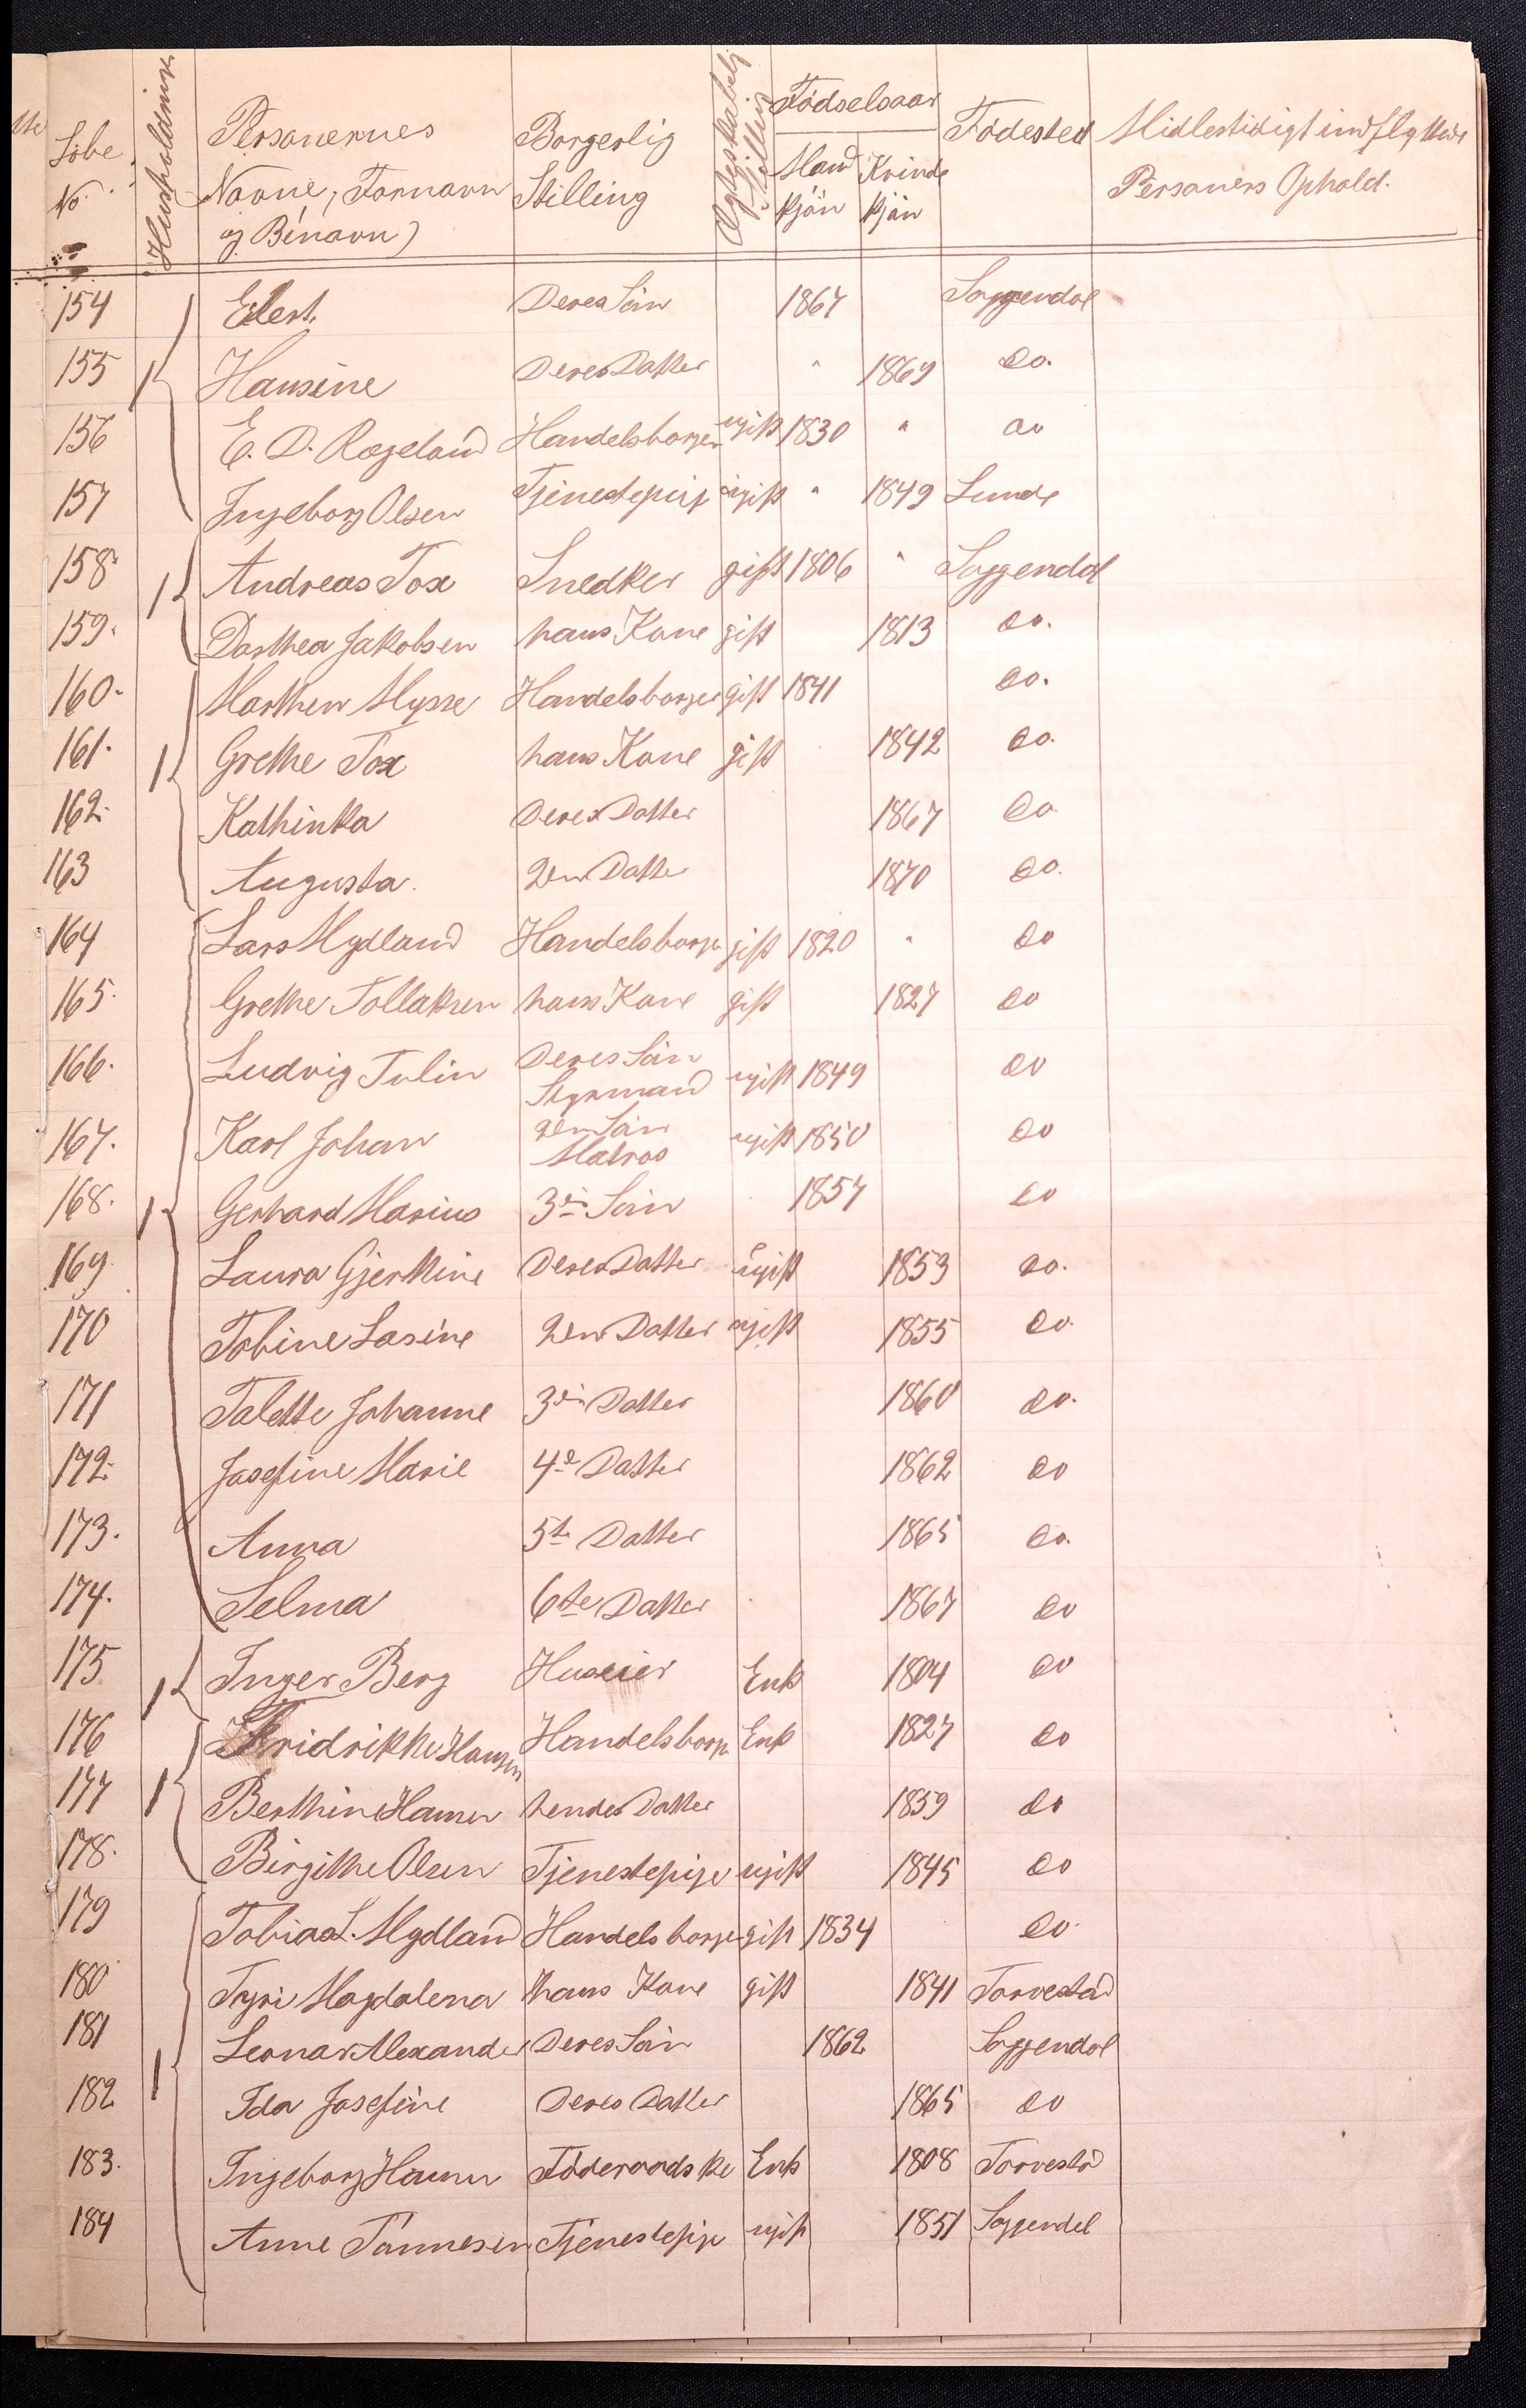 Löbe No. Husholdninger Personernes Navne, (Fornavn og Binavn) Borgerlig Stilling Ægteskabelig Stilling Födselsaar Mand kjön Kvinde kjön Födested Midlertidigt indflyttede Personers Ophold.
154 Elert. Deres Sön 1867 Soggendal
155 1 Hansine Deres Datter " 1869 do.
156 E. D. Rægeland Handelsborger ugift 1830 " do
157 Ingeborg Olsen Tjenestepige ugift " 1849 Lunde
158 1 Andreas Tox Snedker gift 1806 " Soggendal
159. Darthea Jakobsen hans Kone gift 1813 do.
160. Marthin Mysse Handelsborger gift 1841 do.
161. 1 Grethe Tox hans Kone gift 1842 do.
162. Kathinka Deres Datter 1867 do.
163 Augusta. 2den Datter 1870 do.
164 Lars Mydland Handelsborger gift 1820 " do
165. Grethe Tollaksen hans Kone gift 1827 do
166. Ludvig Tulin Deres Sön Styrmand ugift 1849 do
167. Karl Johan 2den Sön Matros ugift 1850 do
168. 1 Gerhard Marius 3die Sön 1857 do
169. Laura Gjerthine Deres Datter ugift 1853 do.
170 Tobine Lasine 2den Datter ugift 1855 do.
171 Talette Johanne 3die Datter 1860 do.
172. Josefine Marie 4de Datter 1862 do
173. Anna 5te Datter 1865 do.
174. Selma 6te Datter 1867 do
175 1 Inger Berg Huseier Enke 1804 do
176 Fridrikke Hansen Handelsborger Enke 1827 do
177 1 Berthine Hansen hendes Datter 1859 do
178. Birgithe Olsen Tjenestepige ugift 1845 do
179 Tobias L. Mydland Handelsborger gift 1834 do.
180 Tyri Magdalena hans Kone gift 1841 Torvestad
181 1 Leonar Alexander Deres Sön 1862. Soggendal
182 Ida Josefine Deres Datter 1865 do
183. Ingeborg Hansen Föderaadske Enke 1808 Torvestad
184 Anne Tönnesen Tjenestepige ugift 1851 Soggendal